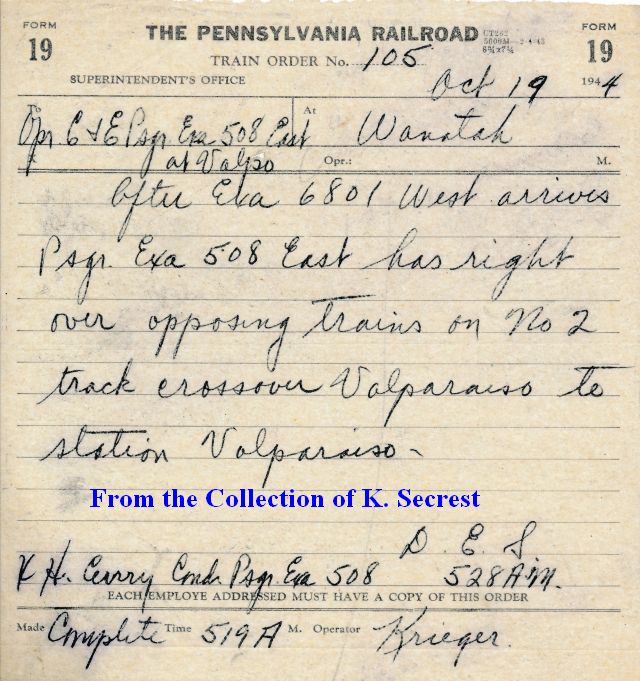 FORM
19
THE PENNSYLVANIA RAILROAD
FORM
19
TRAIN ORDER No. 105
SUPERINTENDENT'S OFFICE
Oct 19 1944
To
At
Opr. C & E Psgr Exa 508 East Wanatah
X at Valpo Opr.: M.
After Exa 6801 West arrives
Psgr. Exa 508 East has right
over opposing trains on No 2
track crossover Valparaiso to
station Valparaiso-
From the Collection of K. Secrest
D. E. S.
K H. Curry Condr. Psgr. Exa 508 528 A.M.
EACH EMPLOYE ADDRESSED MUST HAVE A COPY OF THIS ORDER
Made Complete Time 519 A M. Operator Krieger.